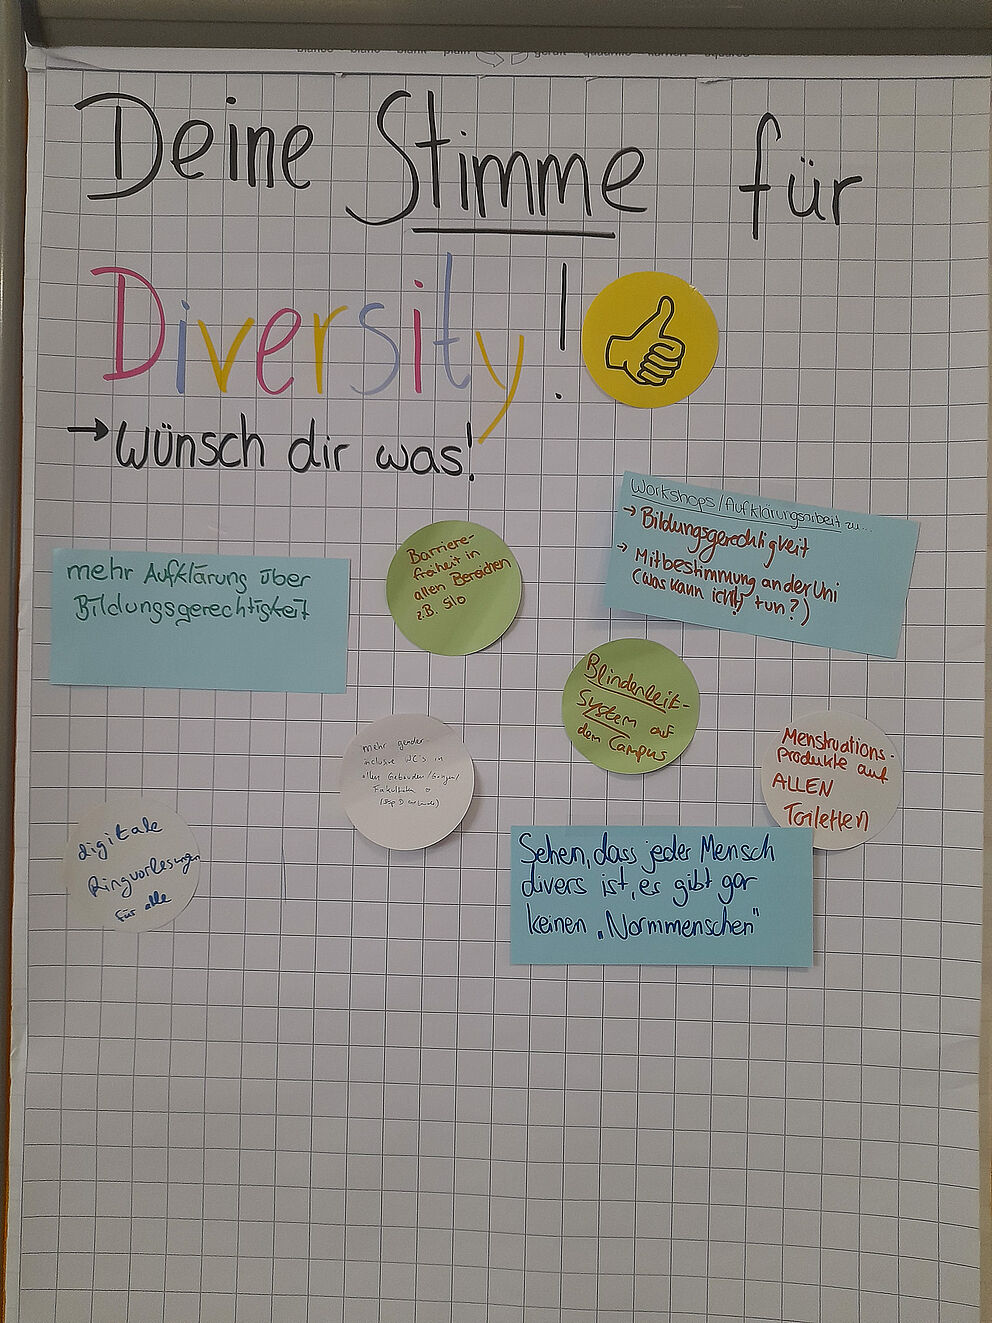 Deine Stimme für
Diversity!
→ Wünsch dir was!
Workshops/Aufklärungsarbeit zu...
→ Bildungsgerechtigkeit
→ Mitbestimmung an der Uni
(Was kann ich tun?)
Barriere-
freiheit in
allen Bereichen
z.B. Silo
mehr Aufklärung über
Bildungsgerechtigkeit
Blindenleit-
System auf
dem Campus
mehr gender-
inclusive WC's in
allen Gebäuden/Gängen/
Fakultäten
Menstruations-
produkte auf
ALLEN
Toiletten
digitale
Ringvorlesungen
für alle
Sehen, dass jeder Mensch
divers ist, es gibt gar
keinen „Normmenschen"